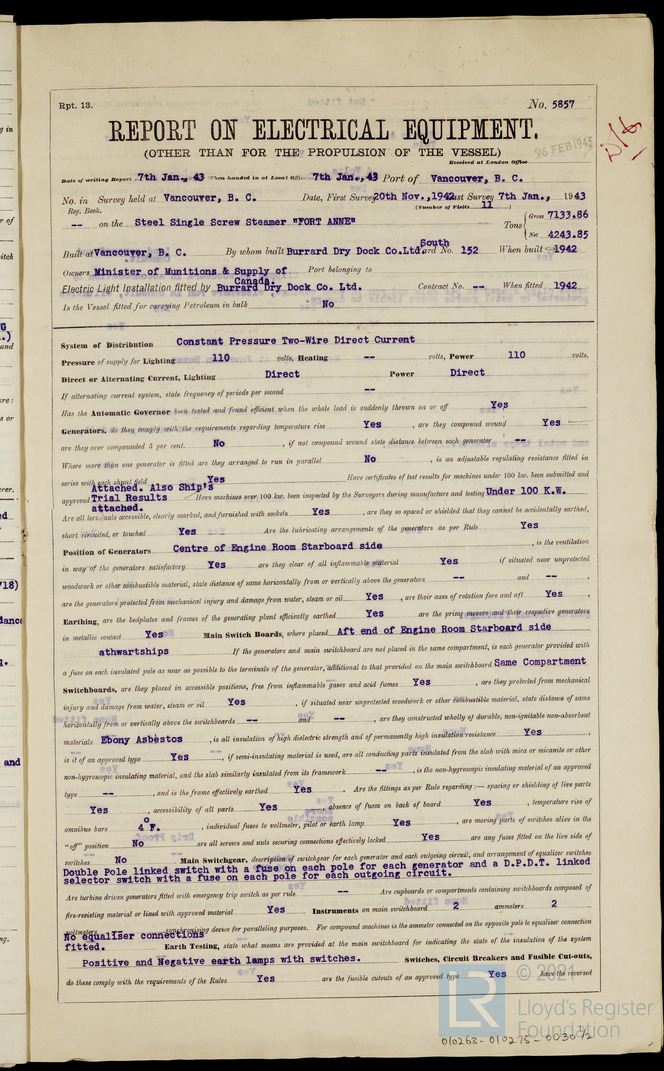 Rpt. 13.
No. 5857
REPORT ON ELECTRICAL EQUIPMENT.
(OTHER THAN FOR THE PROPULSION OF THE VESSEL)
Received at London Office
26 FEB 1943
Date of writing Report 7th Jan., 43 When handed in at Local Office 7th Jan., 43 Port of Vancouver, B. C.
No. in Survey held at Vancouver, B. C. Date, First Survey 20th Nov., 1942 Last Survey 7th Jan., 1943
Reg. Book. (Number of Visits 11 )
-- on the Steel Single Screw Steamer "FORT ANNE" Tons { Gross 7133.86
Net 4243.85
Built at Vancouver, B. C. By whom built Burrard Dry Dock Co.Ltd. South Yard No. 152 When built 1942
Owners Minister of Munitions & Supply of Canada. Port belonging to
Electric Light Installation fitted by Burrard Dry Dock Co. Ltd. Contract No. -- When fitted 1942
Is the Vessel fitted for carrying Petroleum in bulk No
System of Distribution Constant Pressure Two-Wire Direct Current
Pressure of supply for Lighting 110 volts, Heating -- volts, Power 110 volts.
Direct or Alternating Current, Lighting Direct Power Direct
If alternating current system, state frequency of periods per second --
Has the Automatic Governor been tested and found efficient when the whole load is suddenly thrown on or off Yes
Generators, do they comply with the requirements regarding temperature rise Yes , are they compound wound Yes
are they over compounded 5 per cent. No , if not compound wound state distance between each generator --
Where more than one generator is fitted are they arranged to run in parallel No , is an adjustable regulating resistance fitted in
series with each shunt field Yes Have certificates of test results for machines under 100 kw. been submitted and
approved Attached. Also Ship's Trial Results attached. Have machines over 100 kw. been inspected by the Surveyors during manufacture and testing Under 100 K.W.
Are all terminals accessible, clearly marked, and furnished with sockets Yes , are they so spaced or shielded that they cannot be accidentally earthed,
short circuited, or touched Yes Are the lubricating arrangements of the generators as per Rule Yes
Position of Generators Centre of Engine Room Starboard side , is the ventilation
in way of the generators satisfactory Yes are they clear of all inflammable material Yes if situated near unprotected
woodwork or other combustible material, state distance of same horizontally from or vertically above the generators -- and -- ,
are the generators protected from mechanical injury and damage from water, steam or oil Yes , are their axes of rotation fore and aft Yes
Earthing, are the bedplates and frames of the generating plant efficiently earthed Yes are the prime movers and their respective generators
in metallic contact Yes Main Switch Boards, where placed Aft end of Engine Room Starboard side
athwartships If the generators and main switchboard are not placed in the same compartment, is each generator provided with
a fuse on each insulated pole as near as possible to the terminals of the generator, additional to that provided on the main switchboard Same Compartment
Switchboards, are they placed in accessible positions, free from inflammable gases and acid fumes Yes , are they protected from mechanical
injury and damage from water, steam or oil Yes , if situated near unprotected woodwork or other combustible material, state distance of same
horizontally from or vertically above the switchboards -- and -- , are they constructed wholly of durable, non-ignitable non-absorbent
materials Ebony Asbestos , is all insulation of high dielectric strength and of permanently high insulation resistance Yes ,
is it of an approved type Yes , if semi-insulating material is used, are all conducting parts insulated from the slab with mica or micanite or other
non-hygroscopic insulating material, and the slab similarly insulated from its framework -- , is the non-hygroscopic insulating material of an approved
type -- , and is the frame effectively earthed Yes . Are the fittings as per Rule regarding :— spacing or shielding of live parts
Yes , accessibility of all parts Yes , absence of fuses on back of board Yes , temperature rise of
omnibus bars 4° F. , individual fuses to voltmeter, pilot or earth lamp Yes , are moving parts of switches alive in the
"off" position No are all screws and nuts securing connections effectively locked Yes are any fuses fitted on the live side of
switches No Main Switchgear, description of switchgear for each generator and each outgoing circuit, and arrangement of equaliser switches
Double Pole linked switch with a fuse on each pole for each generator and a D.P.D.T. linked
selector switch with a fuse on each pole for each outgoing circuit.
Are turbine driven generators fitted with emergency trip switch as per rule -- Are cupboards or compartments containing switchboards composed of
fire-resisting material or lined with approved material Yes Instruments on main switchboard 2 ammeters 2
voltmeters synchronising device for paralleling purposes. For compound machines is the ammeter connected on the opposite pole to equaliser connection
No equaliser connections fitted. Earth Testing, state what means are provided at the main switchboard for indicating the state of the insulation of the system
Positive and Negative earth lamps with switches. Switches, Circuit Breakers and Fusible Cut-outs,
do these comply with the requirements of the Rules Yes are the fusible cutouts of an approved type Yes have the reversed
© 2021
LR
Lloyd's Register
Foundation
010268-010275-0030 1/2